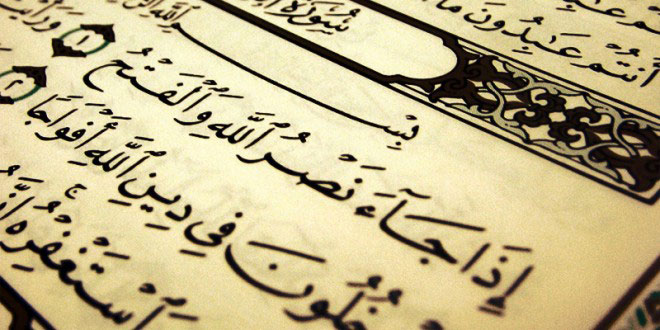 أَنتُمْ عَـٰبِدُونَ مَا
سُورَةُ
بِسْمِ ٱللَّهِ
إِذَا جَآءَ نَصْرُ ٱللَّهِ وَٱلْفَتْحُ ١ وَرَأَ
خُلُونَ فِي دِينِ ٱللَّهِ أَفْوَاجًا ٢
ٱسْتَغْفِرْهُ إِنَّ